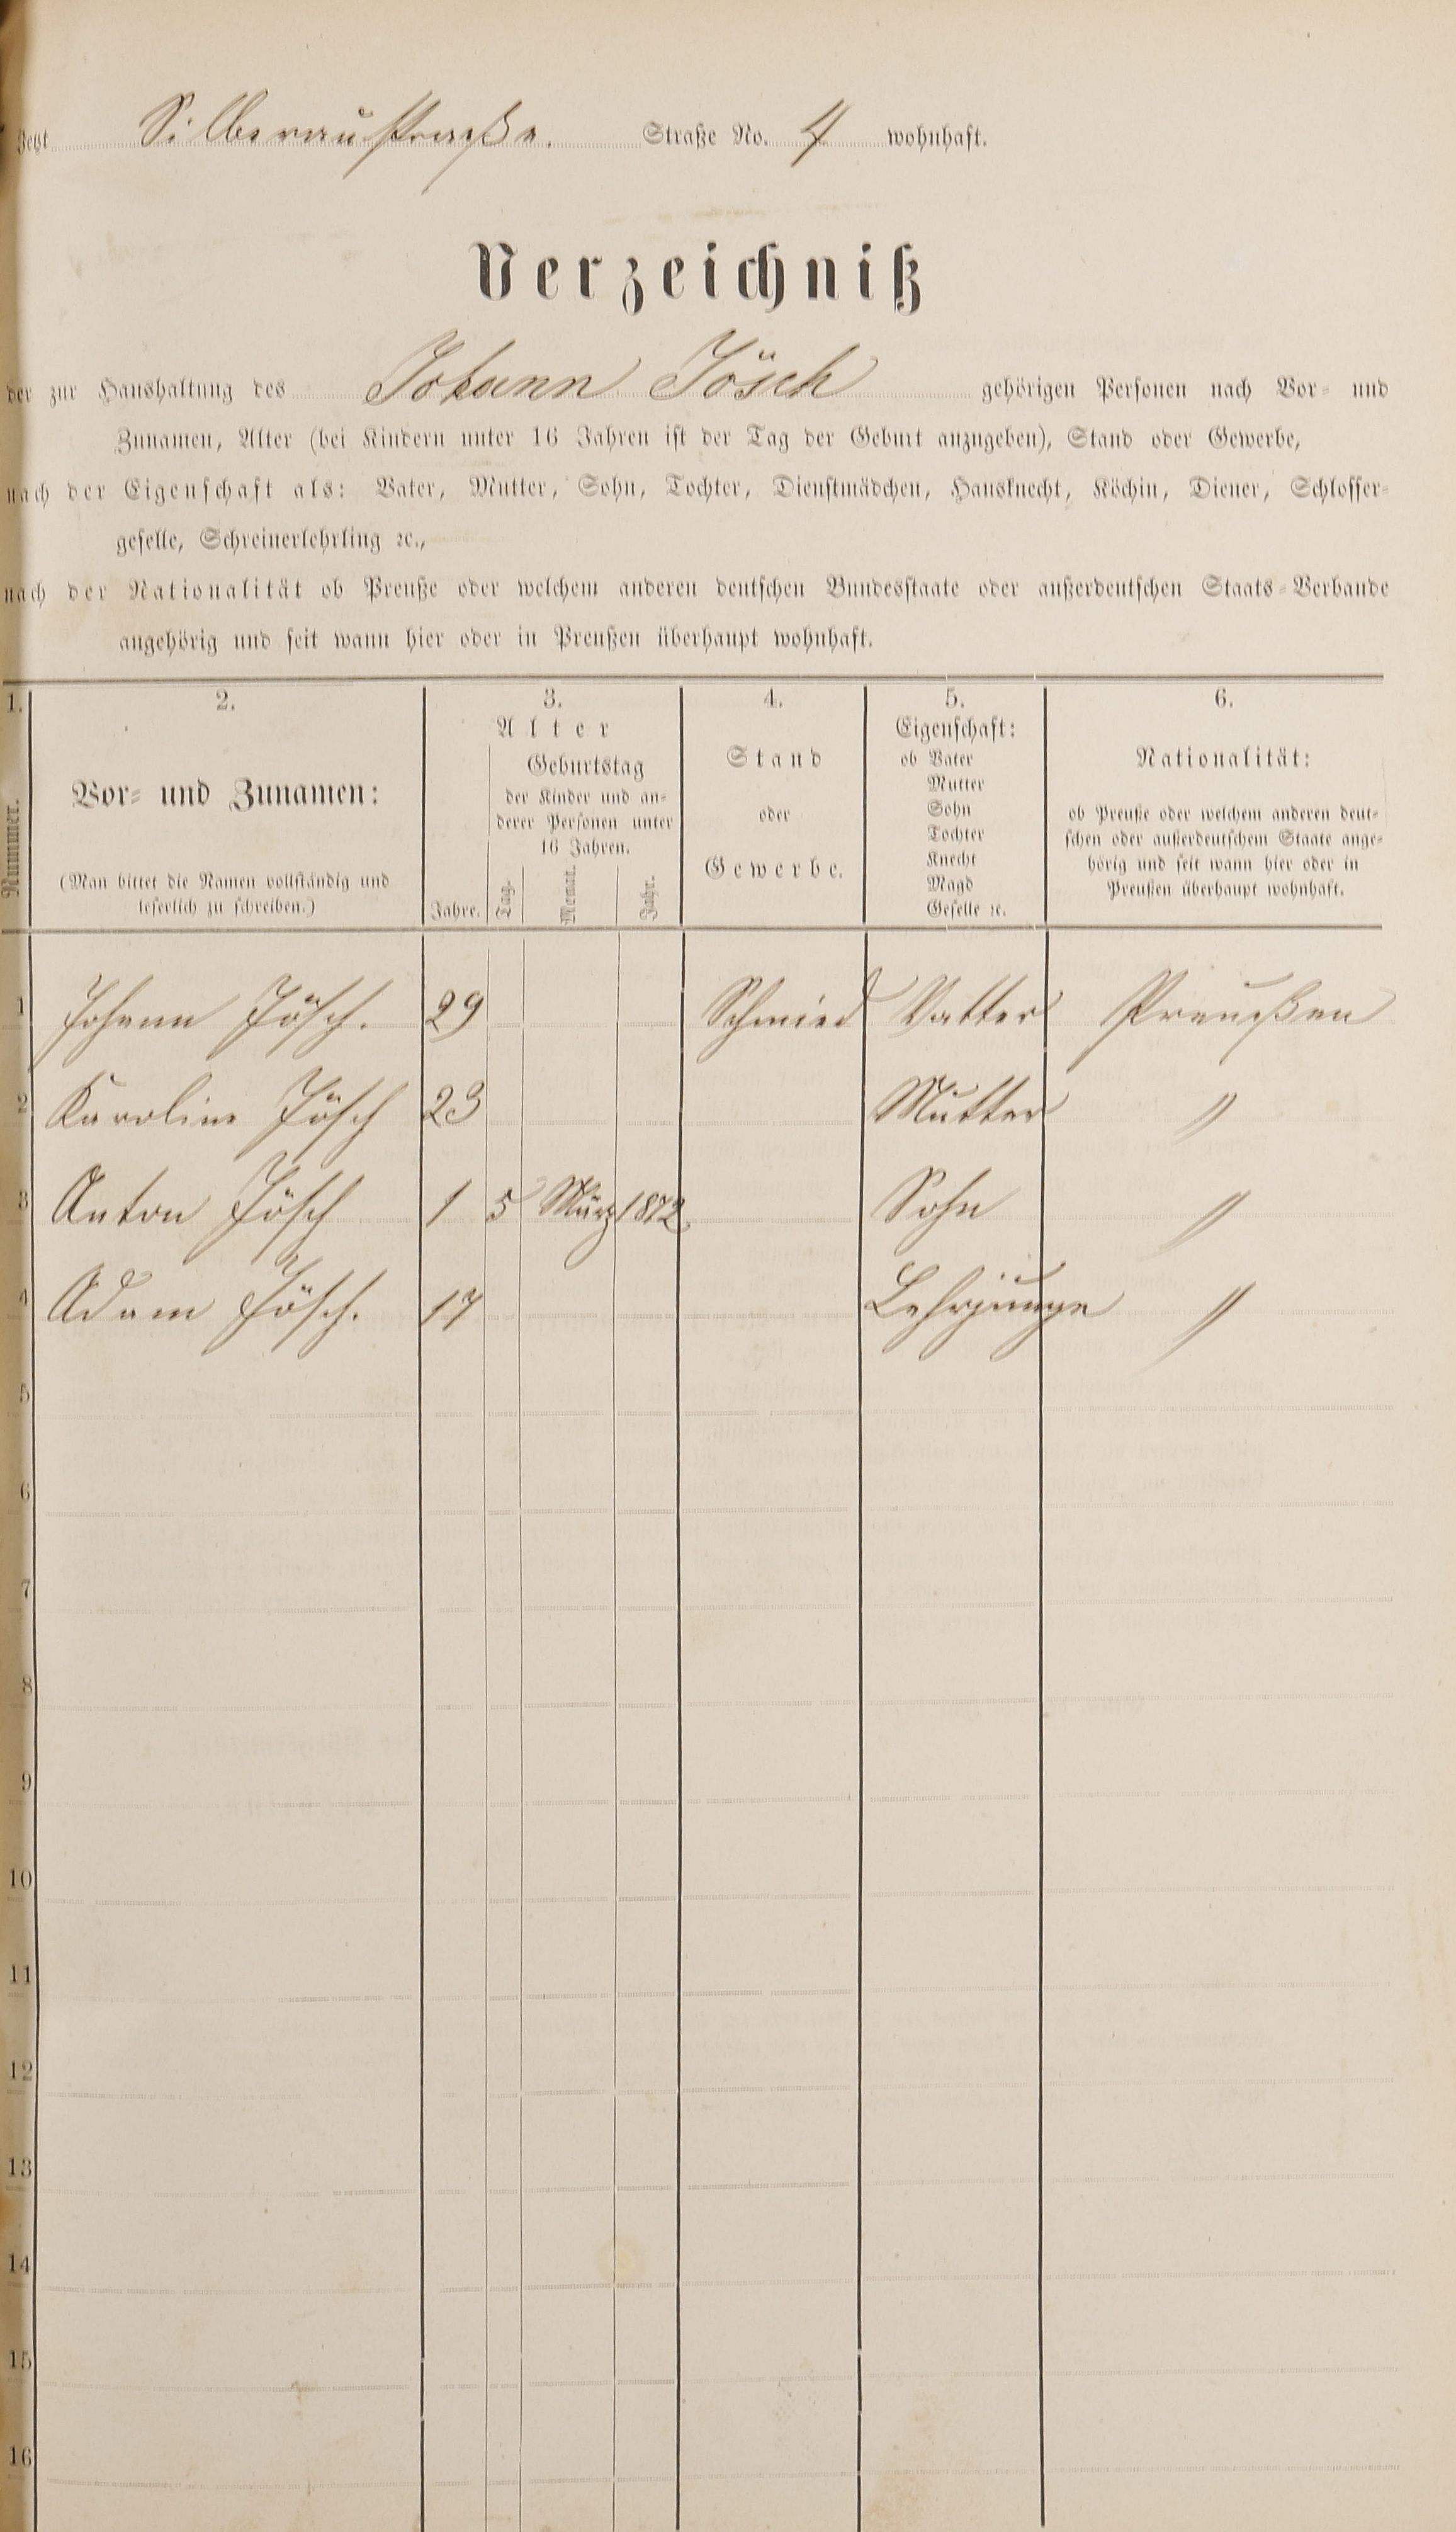 Jetzt Silberaustraße. Straße No. 4 wohnhaft.
Verzeichniß
der zur Haushaltung des Johann Jösch gehörigen Personen nach Vor- und
Zunamen, Alter (bei Kindern unter 16 Jahren ist der Tag der Geburt anzugeben), Stand oder Gewerbe,
nach der Eigenschaft als: Vater, Mutter, Sohn, Tochter, Dienstmädchen, Hausknecht, Köchin, Diener, Schlosser-
geselle, Schreinerlehrling ꝛc.,
nach der Nationalität ob Preuße oder welchem anderen deutschen Bundesstaate oder außerdeutschen Staats-Verbande
angehörig und seit wann hier oder in Preußen überhaupt wohnhaft.
1.
Nummer.
2.
Vor- und Zunamen:
(Man bittet die Namen vollständig und
leserlich zu schreiben.)
3.
Alter
Jahre.
Geburtstag
der Kinder und an-
derer Personen unter
16 Jahren.
Tag.
Monat.
Jahr.
4.
Stand
oder
Gewerbe.
5.
Eigenschaft:
ob Vater
Mutter
Sohn
Tochter
Knecht
Magd
Geselle ꝛc.
6.
Nationalität:
ob Preuße oder welchem anderen deut-
schen oder außerdeutschem Staate ange-
hörig und seit wann hier oder in
Preußen überhaupt wohnhaft.
1 Johann Jösch. 29 Schmied Vatter Preußen
2 Karoline Jösch 23 Mutter "
3 Anton Jösch 1 5 März 1872 Sohn "
4 Adam Jösch. 17 Lehrjunge "
5
6
7
8
9
10
11
12
13
14
15
16